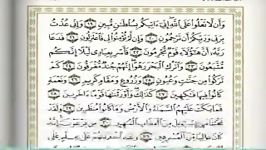 وَأَن لَّا تَعْلُوا۟ عَلَى ٱللَّهِ إِنِّىٓ ءَاتِيكُم بِسُلْطَٰنٍ مُّبِينٍ ١٩ وَإِنِّى عُذْتُ
بِرَبِّى وَرَبِّكُمْ أَن تَرْجُمُونِ ٢٠ وَإِن لَّمْ تُؤْمِنُوا۟ لِى فَٱعْتَزِلُونِ ٢١ فَدَعَا
رَبَّهُۥٓ أَنَّ هَٰٓؤُلَآءِ قَوْمٌ مُّجْرِمُونَ ٢٢ فَأَسْرِ بِعِبَادِى لَيْلًا إِنَّكُم
مُّتَّبَعُونَ ٢٣ وَٱتْرُكِ ٱلْبَحْرَ رَهْوًا إِنَّهُمْ جُندٌ مُّغْرَقُونَ ٢٤ كَمْ
تَرَكُوا۟ مِن جَنَّٰتٍ وَعُيُونٍ ٢٥ وَزُرُوعٍ وَمَقَامٍ كَرِيمٍ ٢٦ وَنَعْمَةٍ
كَانُوا۟ فِيهَا فَٰكِهِينَ ٢٧ كَذَٰلِكَ وَأَوْرَثْنَٰهَا قَوْمًا ءَاخَرِينَ ٢٨
فَمَا بَكَتْ عَلَيْهِمُ ٱلسَّمَآءُ وَٱلْأَرْضُ وَمَا كَانُوا۟ مُنظَرِينَ ٢٩ وَلَقَدْ
نَجَّيْنَا بَنِىٓ إِسْرَٰٓءِيلَ مِنَ ٱلْعَذَابِ ٱلْمُهِينِ ٣٠ مِن فِرْعَوْنَ إِنَّهُۥ
كَانَ عَالِيًا مِّنَ ٱلْمُسْرِفِينَ ٣١ وَلَقَدِ ٱخْتَرْنَٰهُمْ عَلَىٰ عِلْمٍ عَلَى